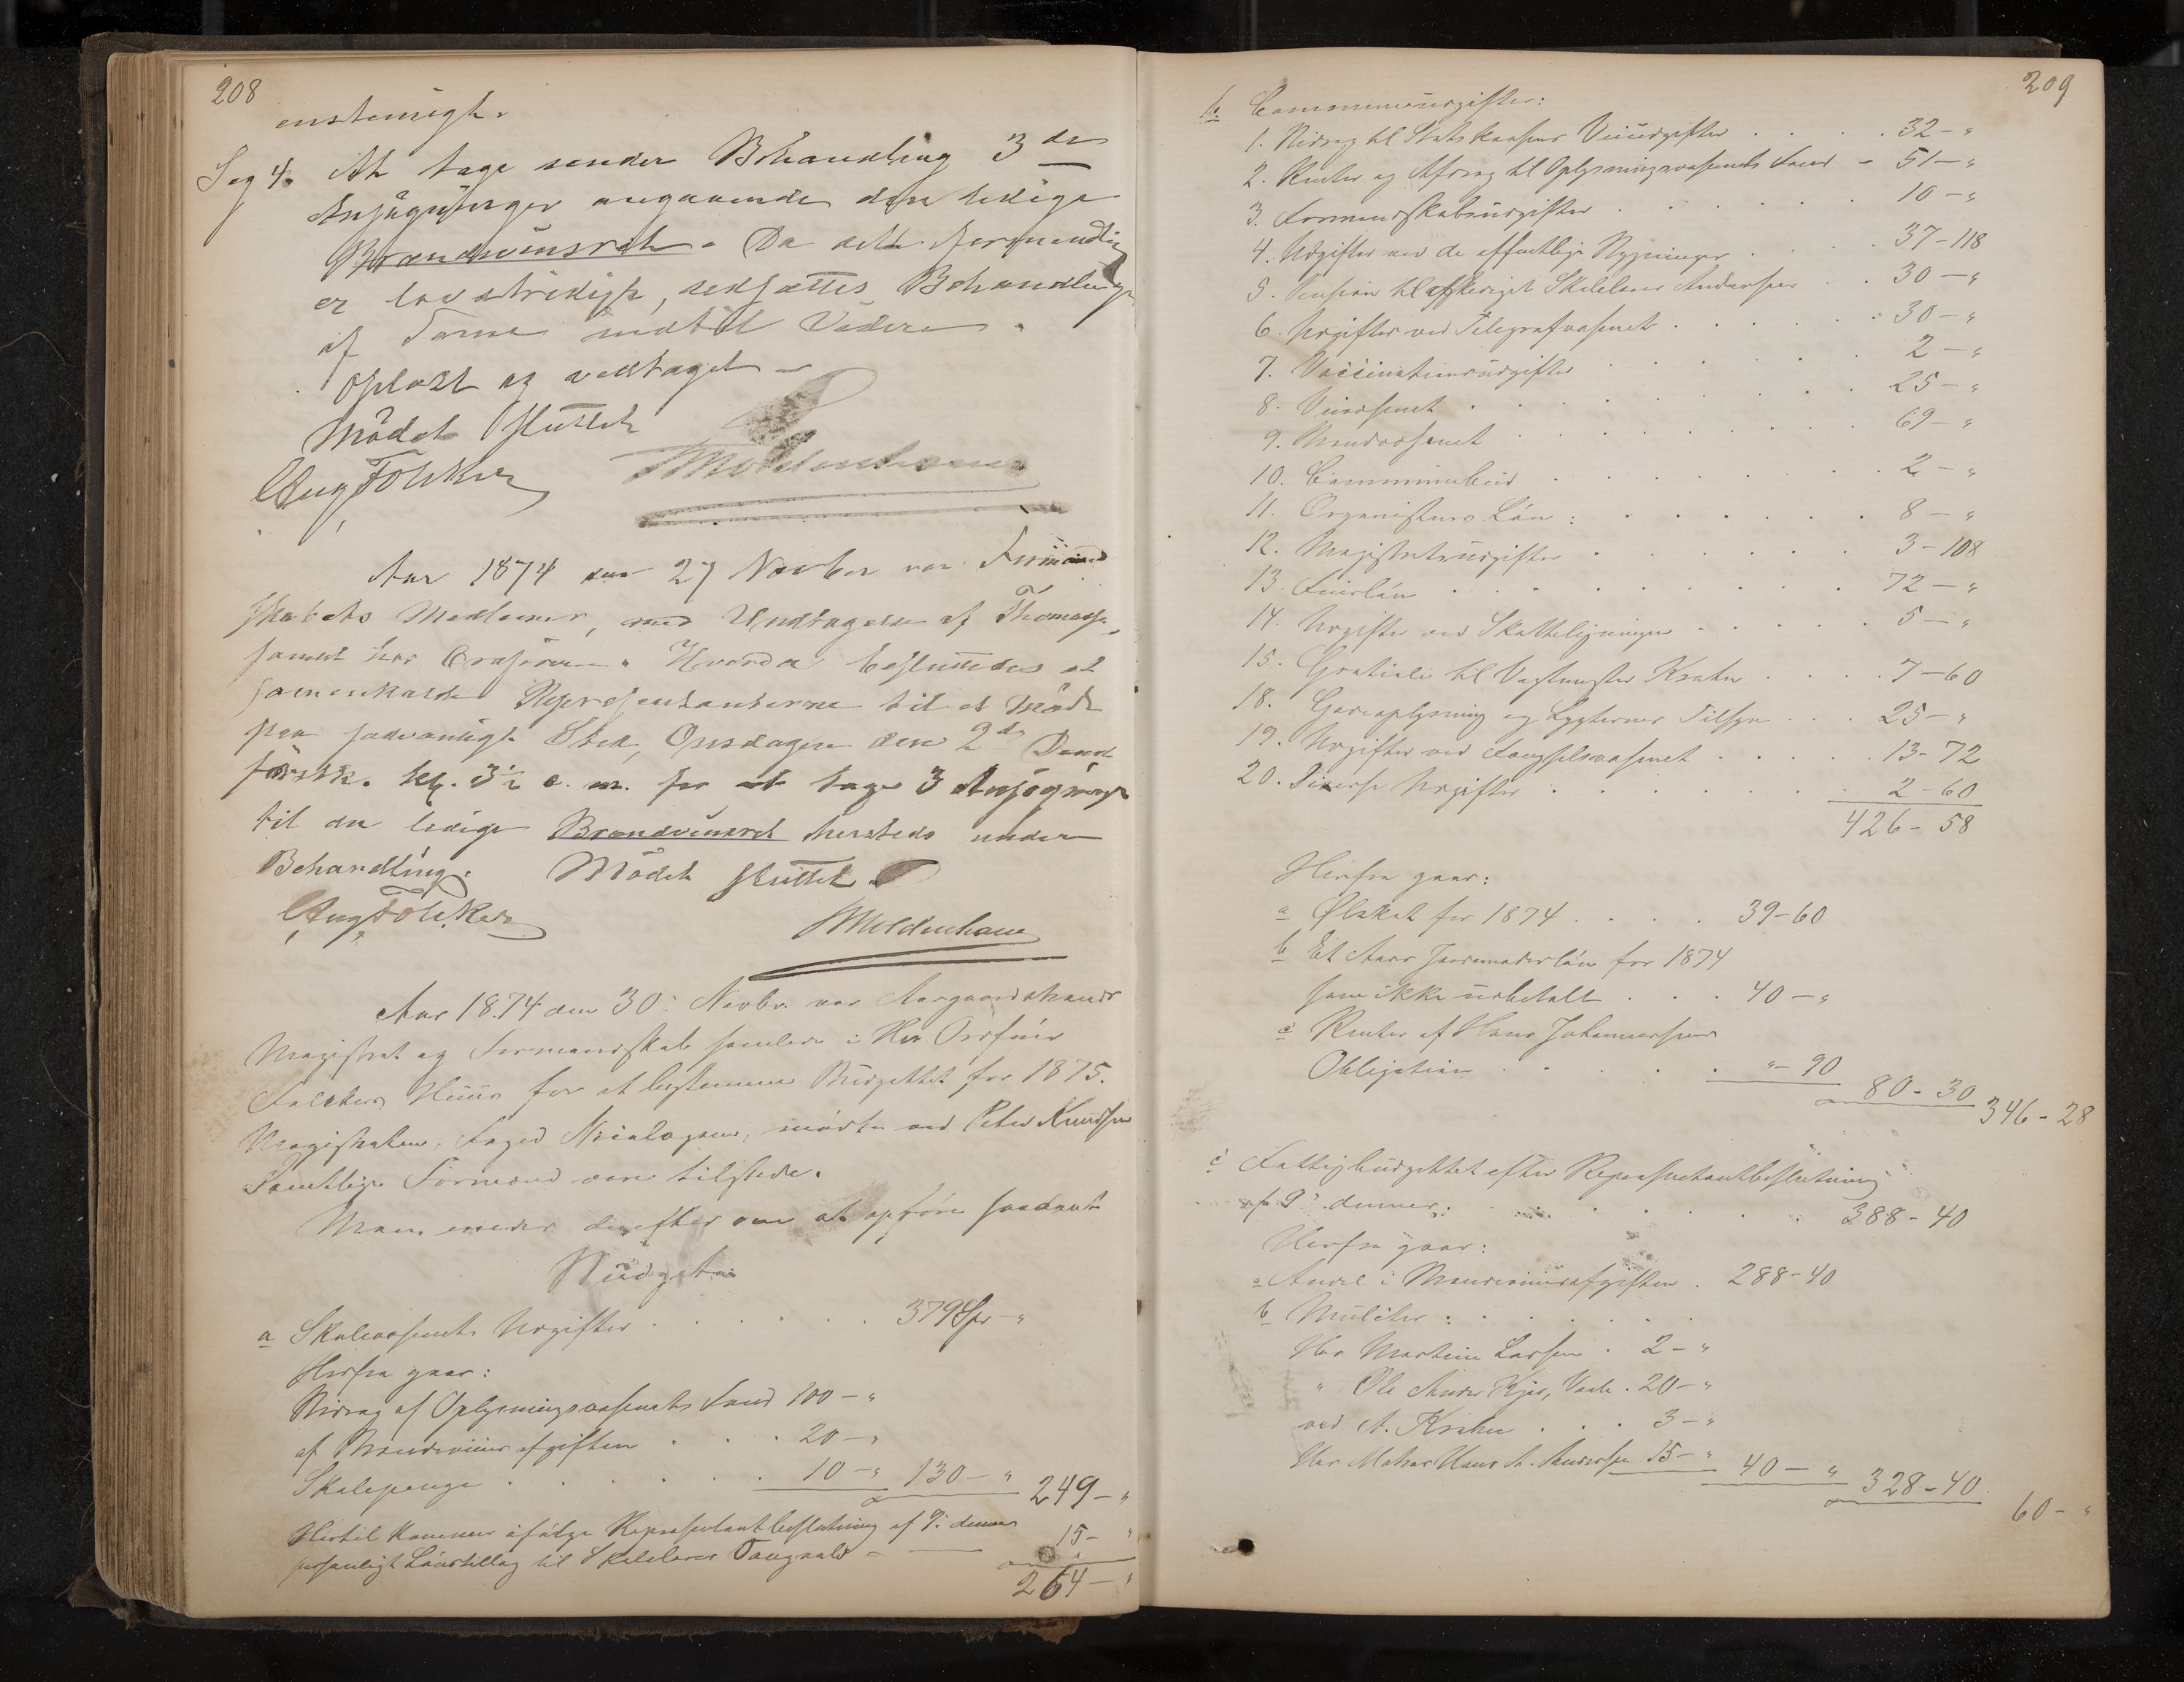 208
enstemigt.
Sag 4. At tage under Behandling 3de
Ansøgninger angaaende den ledige
Brændevinsret. Da dette formentlig
er lovstridigt, udsættes Behandlingen
af denne indtil Videre.
Oplæst og vedtaget
Mödet sluttet
Aug Fölcker Moldenhauer
Aar 1874 den 27 Novber var Formand
skabets Medlemer, med Undtagelse af Thomassen,
samlet hos Ordföreren. Hvorda besluttedes at
sammenkalde Repræsentanterne til et Möde
paa sædvanligt Sted, Onsdagen den 2de Decbr
förstk. kl. 3½ e. m. for at tage 3 Ansögninger
til den ledige Brændevinsret hersteds under
Behandling. Mödet sluttet.
Aug Fölcker Moldenhauer
Aar 1874 den 30. Novbr. var Aasgaardstrands
Magistrat og Formandskab samlede i Hr Ordförer
Følckers Huus for at bestemme Budgettet for 1875.
Magistraten, Foged Nicolaysen, mødte ved Peter Knudsen
Samtlige Formænd vare tilstede.
Man enedes derefter om at opføre saadant
Budget:
a Skolevæsenets Udgifter . . . . . . 379 Spd - "
Herfra gaar:
Bidrag af Oplysningsvæsenets Fond 100 - "
af Brændeviinsafgiften . . . 20 - "
Skolepenge . . . . . . 10 - " 130 - " 249 - "
Hertil kommer ifølge Repræsentantbeslutning af 9. dennes
personligt Lønstillæg til Skolelærer Taugvald - 15 - "
264 - "
209
b. Communeudgifter:
1. Bidrag til Statskassens Veiudgifter . . . . 32 - "
2. Renter og Afdrag til Oplysningsvæsenets Fond - 51 - "
3. Formandskabsudgifter . . . . . . 10 - "
4. Udgifter ved de offentlige Bygninger . . . 37 - 118
5. Pension til afskediget Skolelærer Andersen . . 30 - "
6. Udgifter ved Telegrafvæsenet . . . . . 30 - "
7. Vaccinationsudgifter . . . . . 2 - "
8. Veivæsenet . . . . . . . 25 - "
9. Brandvæsenet . . . . . . . 69 - "
10. Communebud . . . . . . 2 - "
11. Organistens Løn: . . . . . . 8 - "
12. Magistratsudgifter . . . . . . 3 - 108
13. . . . . . . . 72 - "
14. Udgifter ved Skatteligningen . . . . . 5 - "
15. Gratiale til Vagtmester Krohn . . . . 7 - 60
18. Gadeoplysning og Lygternes Tilsyn . . . 25 - "
19. Udgifter ved Fængselsvæsenet . . . . . 13 - 72
20. Diverse Udgifter . . . . . . 2 - 60
426 - 58
Herfra gaar:
a Ølskat for 1874 . . . . 39 - 60
b Et Aars Jordemoderløn for 1874
som ikke udbetalt . . . 40 - "
c Renter af Hans Johannessens
Obligation . . . . . " - 90
80 - 30
346 - 28
c Fattigbudgettet efter Repræsentantbeslutning
af 9. dennes: . . . . . 388 - 40
Herfra gaar:
a Andel i Brændeviinsafgiften . 288 - 40
b Mulcter: . . . . . .
Hos Martin Larsen . 2 - "
" Ole Anders Kjær, Vaale . 20 - "
ved A. Krohn . . . 3 - "
Hos Hans A. Andersen 15 - " 40 - " 328 - 40
60 - "